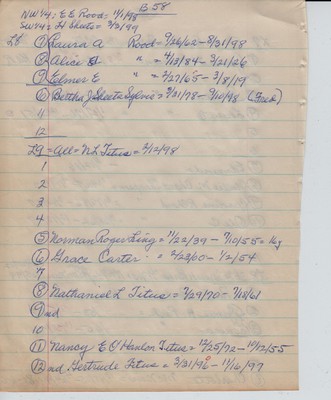 B 58
NW 1/4: E E Rood = 11/1/98
SW 1/4: H Sheets = 3/3/99
L8 (7) Laura A Rood = 9/26/62 - 8/31/98
(8) Alice " = 4/13/84 - 3/21/26
(9) Elmer E " = 2/27/65 - 3/8/19
(10) Bertha J Sheets Sylvia = 3/31/78 - 9/10/98
11
12
L9 = all = N L Titus = 3/12/98
1
2
3
4
(5) Norman Roger Ling = 11/22/39 - 7/10/55 = 16y
(6) Grace Carter = 2/23/60 - 1/2/54
7
(8) Nathaniel L Titus = 7/29/70 - 7/18/61
(9) nd
10
(11) Nancy E O'Hanlon Titus = 12/25/72 - 10/12/55
(12) nd Gertrude Titus = 3/31/96 - 11/16/97